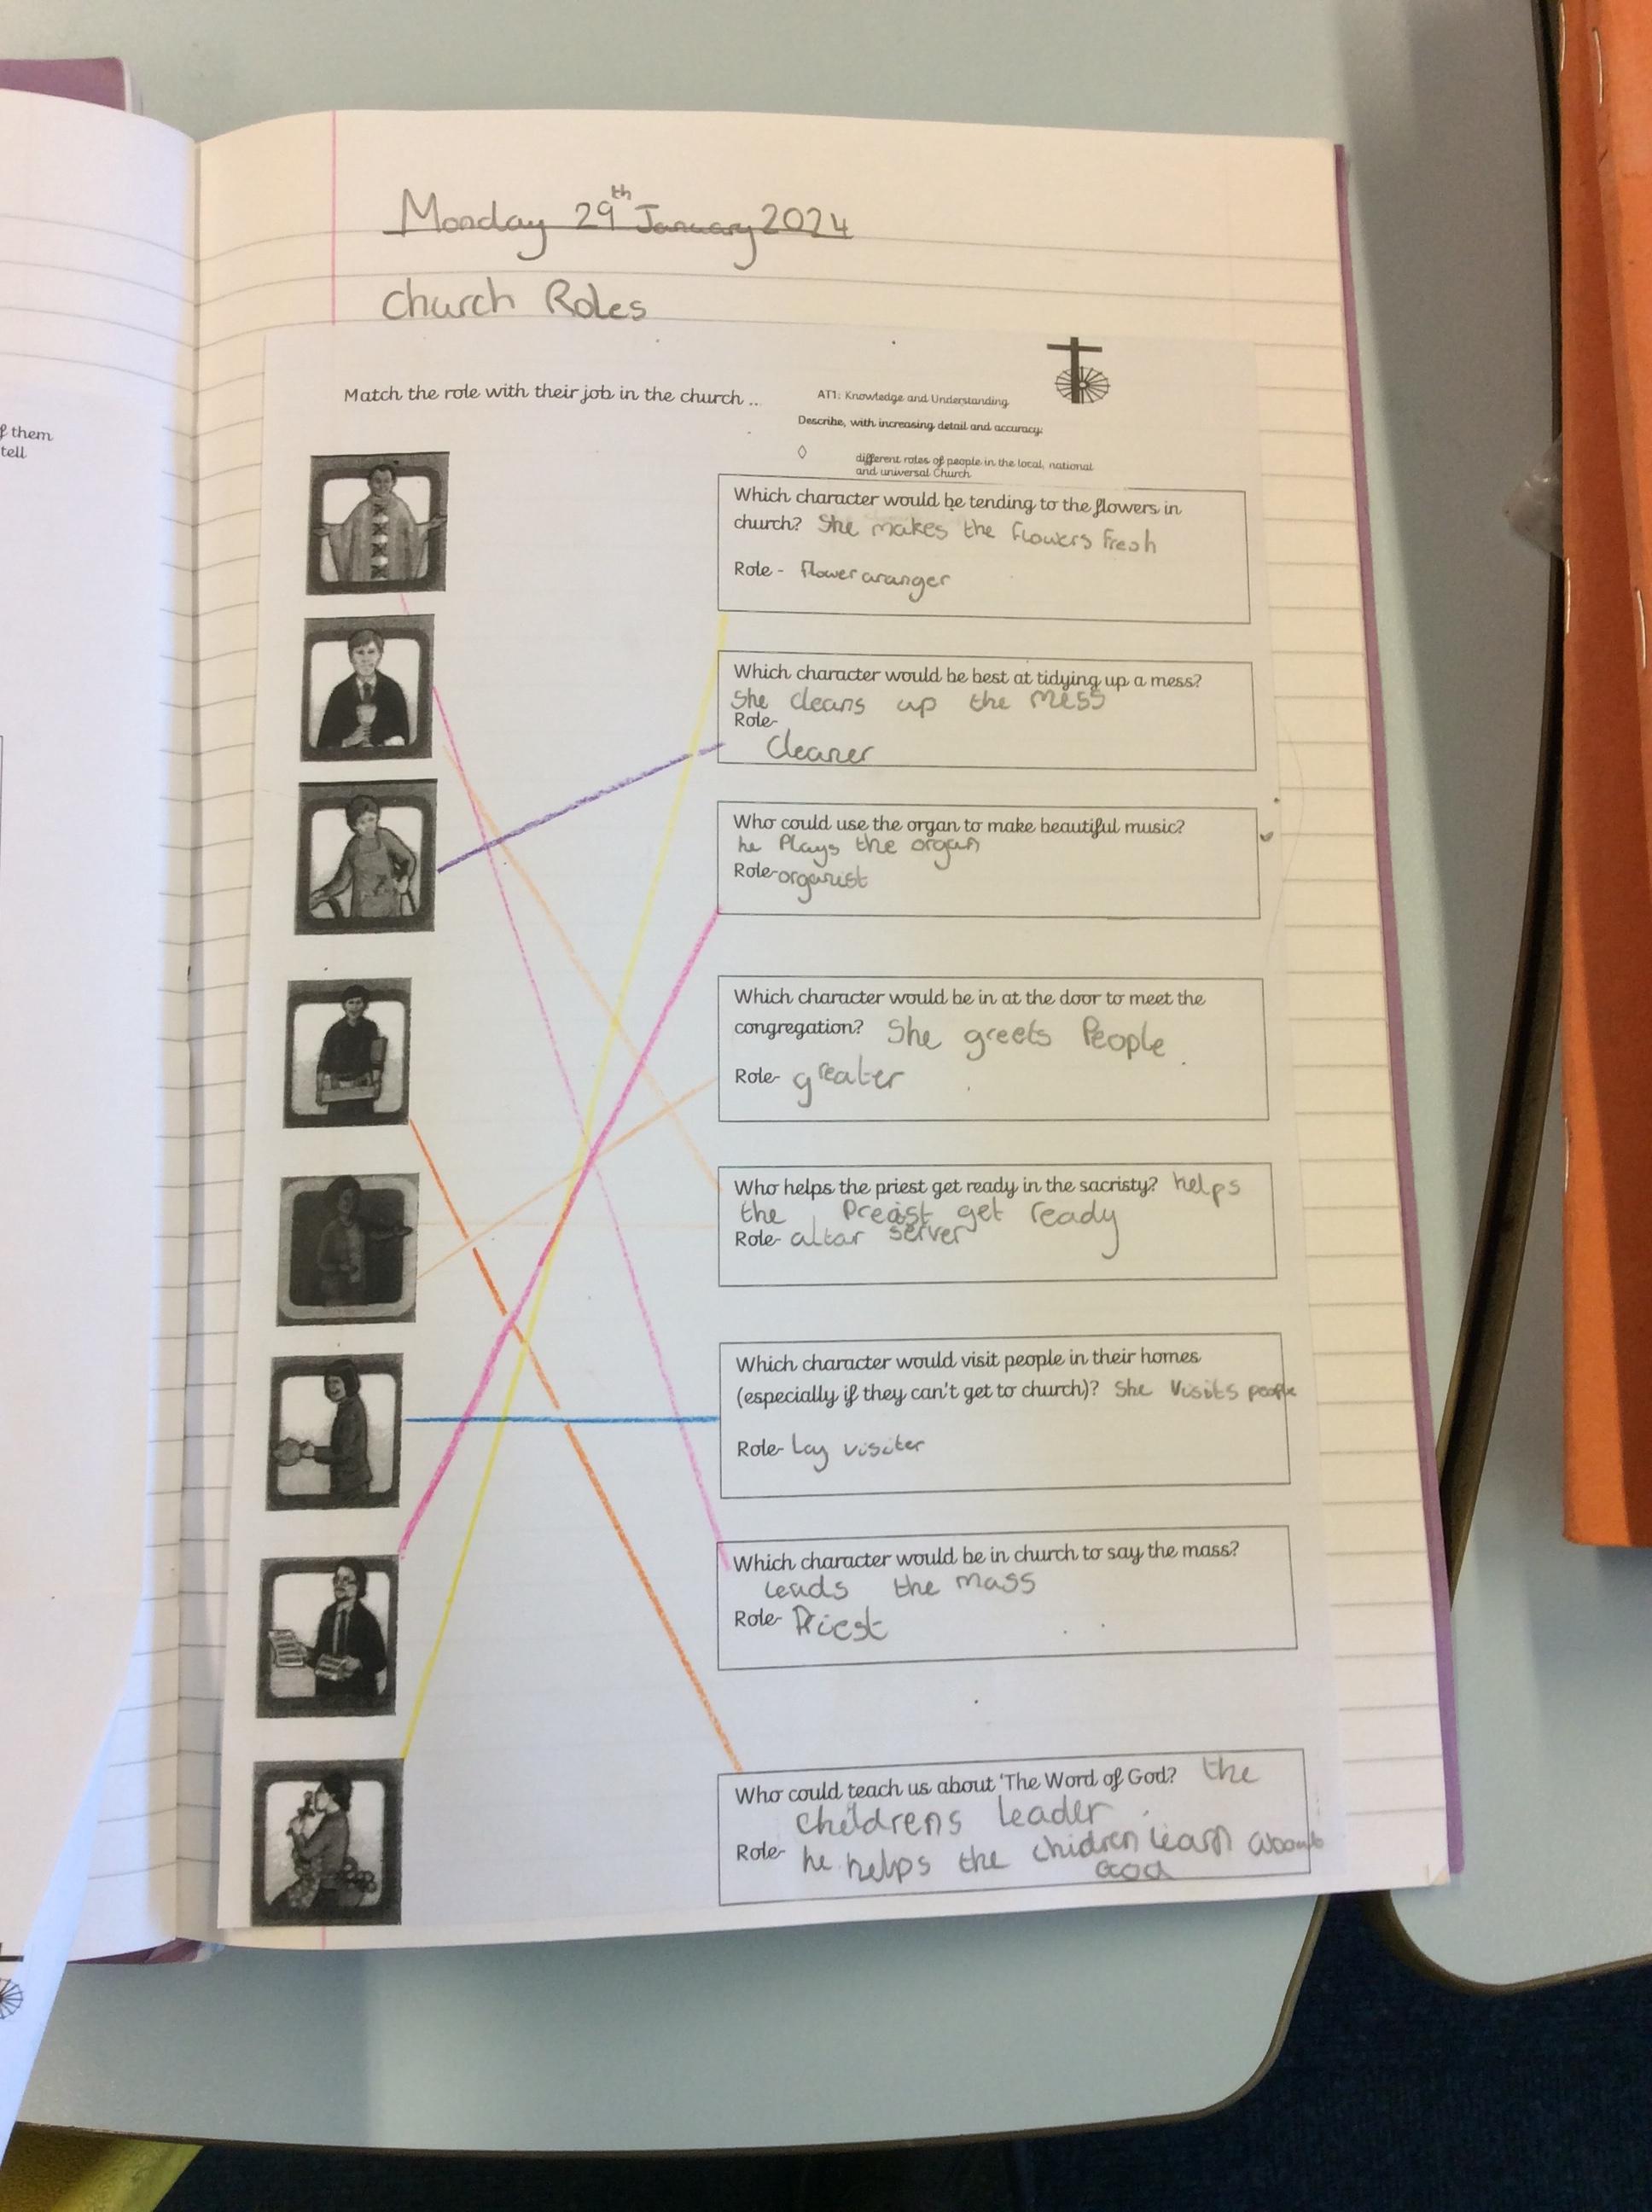 f them
tell
Monday 29th January 2024
Church Roles
Match the role with their job in the church ...
AT1: Knowledge and Understanding
Describe, with increasing detail and accuracy:
◊ different roles of people in the local, national
and universal Church
Which character would be tending to the flowers in
church? She makes the flowers fresh
Role - flower aranger
Which character would be best at tidying up a mess?
She cleans up the mess
Role-
Cleaner
Who could use the organ to make beautiful music?
he Plays the organ
Role- organist
Which character would be in at the door to meet the
congregation? She greets People
Role- greater
Who helps the priest get ready in the sacristy? helps
the Preaist get ready
Role- altar server
Which character would visit people in their homes
(especially if they can't get to church)? She Visits people
Role- Lay visiter
Which character would be in church to say the mass?
leads the mass
Role- Priest
Who could teach us about 'The Word of God? the
childrens leader
Role- he helps the children learn about
God